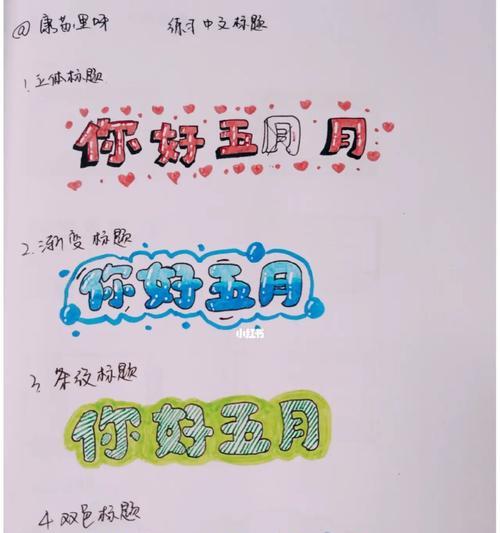 @康苗里呀 练习中文标题
1.立体标题
你好五月月
2.渐变标题
你好五月
小红书
3.条纹标题
你好五月
4双色标题